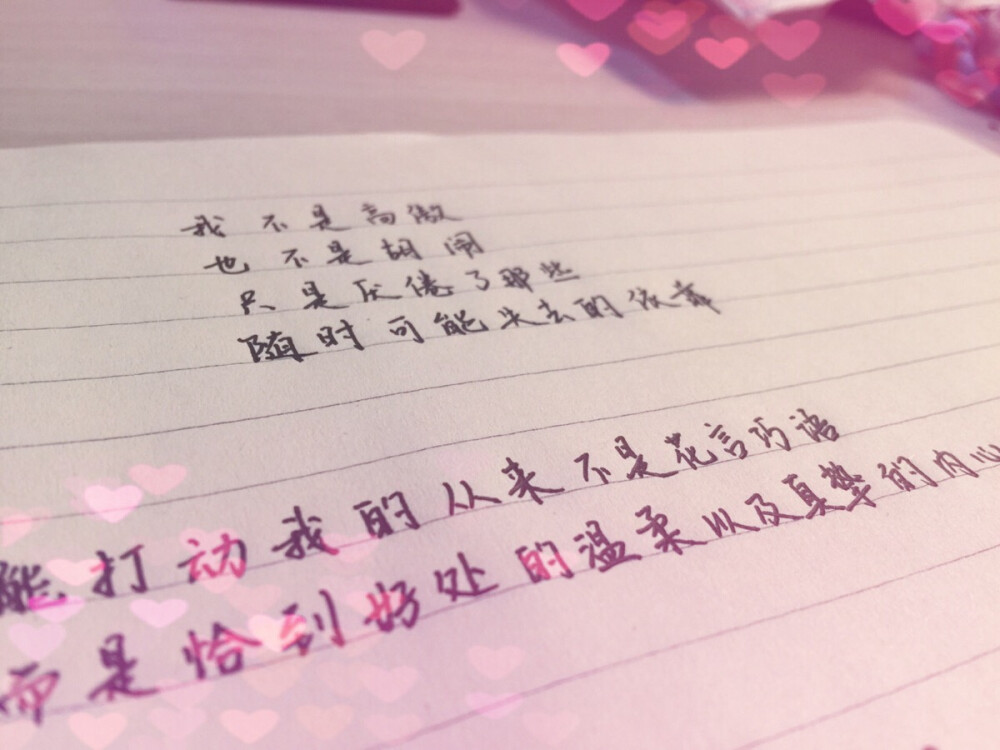 我不是高傲
也不是胡闹
只是厌倦了那些
随时可能失去的依靠
能打动我的从来不是花言巧语
而是恰到好处的温柔以及真挚的内心